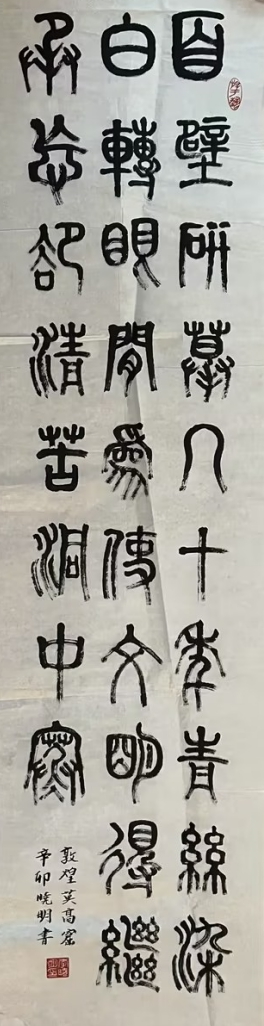 面壁研摹八十年青絲染
白轉眼間為傳文明得繼
承忘卻清苦洞中寒
敦煌莫高窟
辛卯曉明書